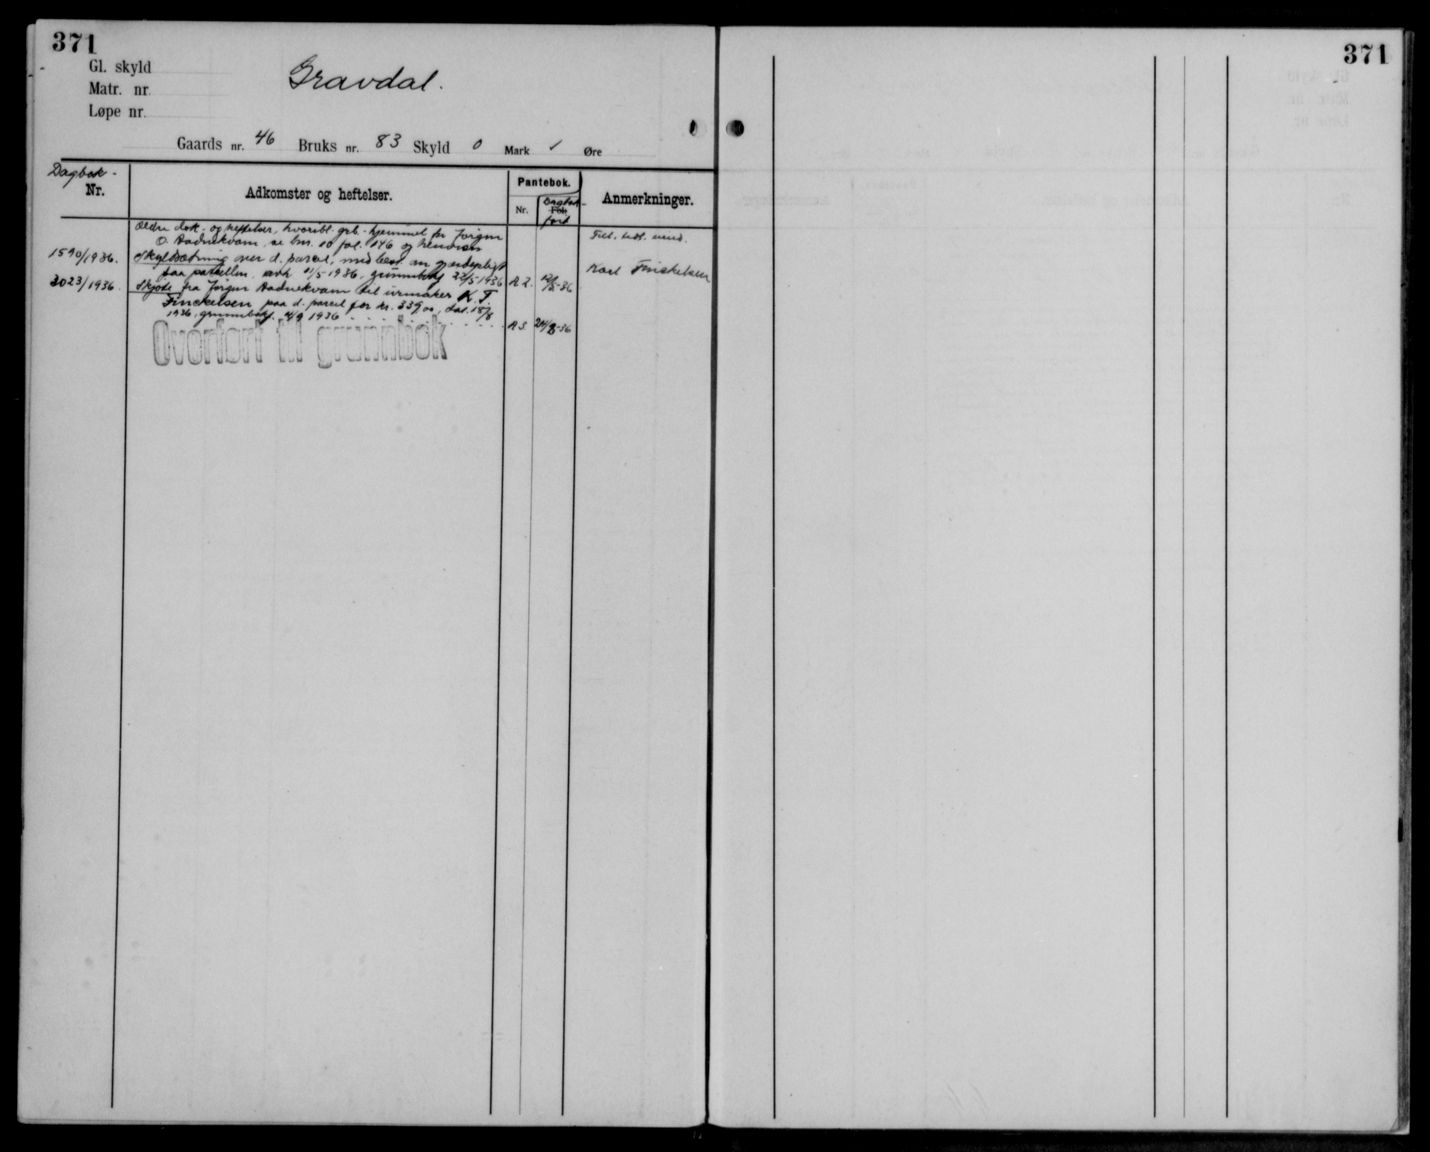 371
Gl. skyld
Matr. nr.
Løpe nr.
Gravdal.
Gaards nr. 46 Bruks nr. 83 Skyld 0 Mark 1 Øre
Dagbok-
Nr.
Adkomster og heftelser.
Pantebok.
Nr.
Fol.
Dagbok-
ført
Anmerkninger.
Ældre dok. og heftelser, hvoribl. grb. hjemmel for Jørgen
O. Aadnekvam, se bnr. 10 fol. 146 og henvisn.
1590/1936. Skylddeling over d. parcel, med best. om gjerdeplikt
paa parcellen, avh. /5-1936, grunnbokf. 22/5 1936 A 2. /5-36
3023/1936. Skjøte fra Jørgen Aadnekvam til urmaker K. F.
Finckelsen paa d. parcel for kr. dat. 18/8
1936, grunnbokf. /9 1936 A 3.
Karl Finckelsen
Overført til grunnbok
371